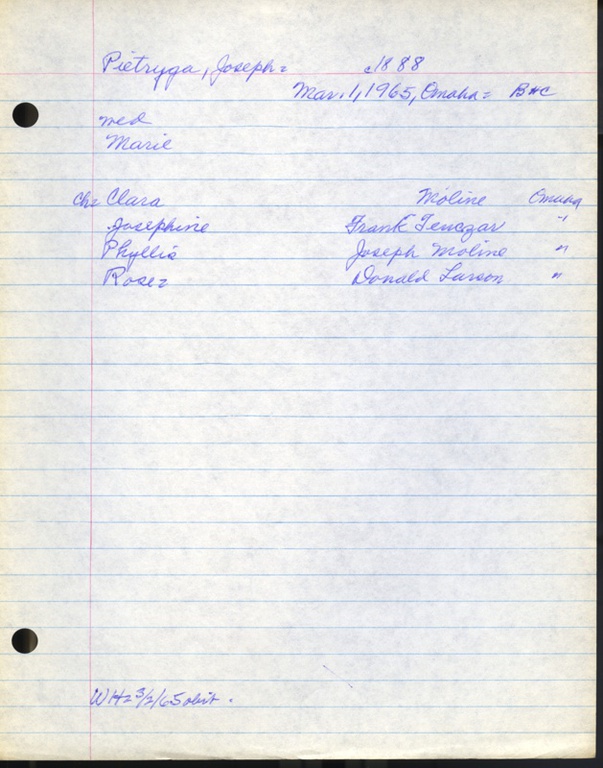 Pietryga, Joseph= c1888
Mar. 1, 1965, Omaha= BHC
med
Marie
ch= Clara Moline Omaha
Josephine Frank Tenczar "
Phyllis Joseph Moline "
Rose= Donald Larson "
WH= 3/2/65 obit.